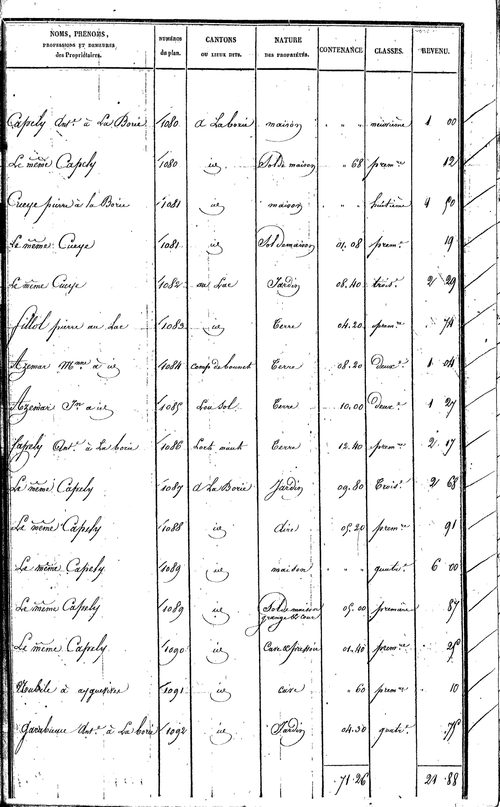 NOMS, PRÉNOMS, PROFESSIONS ET DEMEURES des Propriétaires. NUMÉROS du plan. CANTONS OU LIEUX DITS. NATURE DES PROPRIÉTÉS. CONTENANCE CLASSES. REVENU.
Capely Ant.e à La Borie 1080 à Laborie maison " " neuvième 1 00
Le même Capely 1080 id Sol de maison " 68 prem.re 12
Cueye pierre à la Borie 1081 id maison " " huitième 4 50
Le même Cueye 1081 id Sol de maison 01.08 prem.re 19
Le même Cueye 1082 au Lac Jardin 08.40 trois.e 2 29
fillol pierre au Lac 1083 id Terre 04.20 prem.re 74
Azemar à id 1084 Terre 08.20 deux.e 1 04
Azemar à id 1085 Lou Sol Terre 10.00 deux.e 1 27
Capely Ant.e à La borie 1086 Terre 12.40 prem.re 2 17
Le même Capely 1087 à La Borie Jardin 09.80 Trois.e 2 68
Le même Capely 1088 id aire 05.20 prem.re 91
Le même Capely 1089 id maison " " quatr.e 6 00
Le même Capely 1089 id Sol de maison grange & cour 05.00 première 87
Le même Capely 1090 id Cave & pressoir 01.46 prem.re 25
à 1091 id cave " 60 prem.re 10
Ant.e à La borie 1092 id Jardin 04.30 quatr.e 75
71.26 24.88